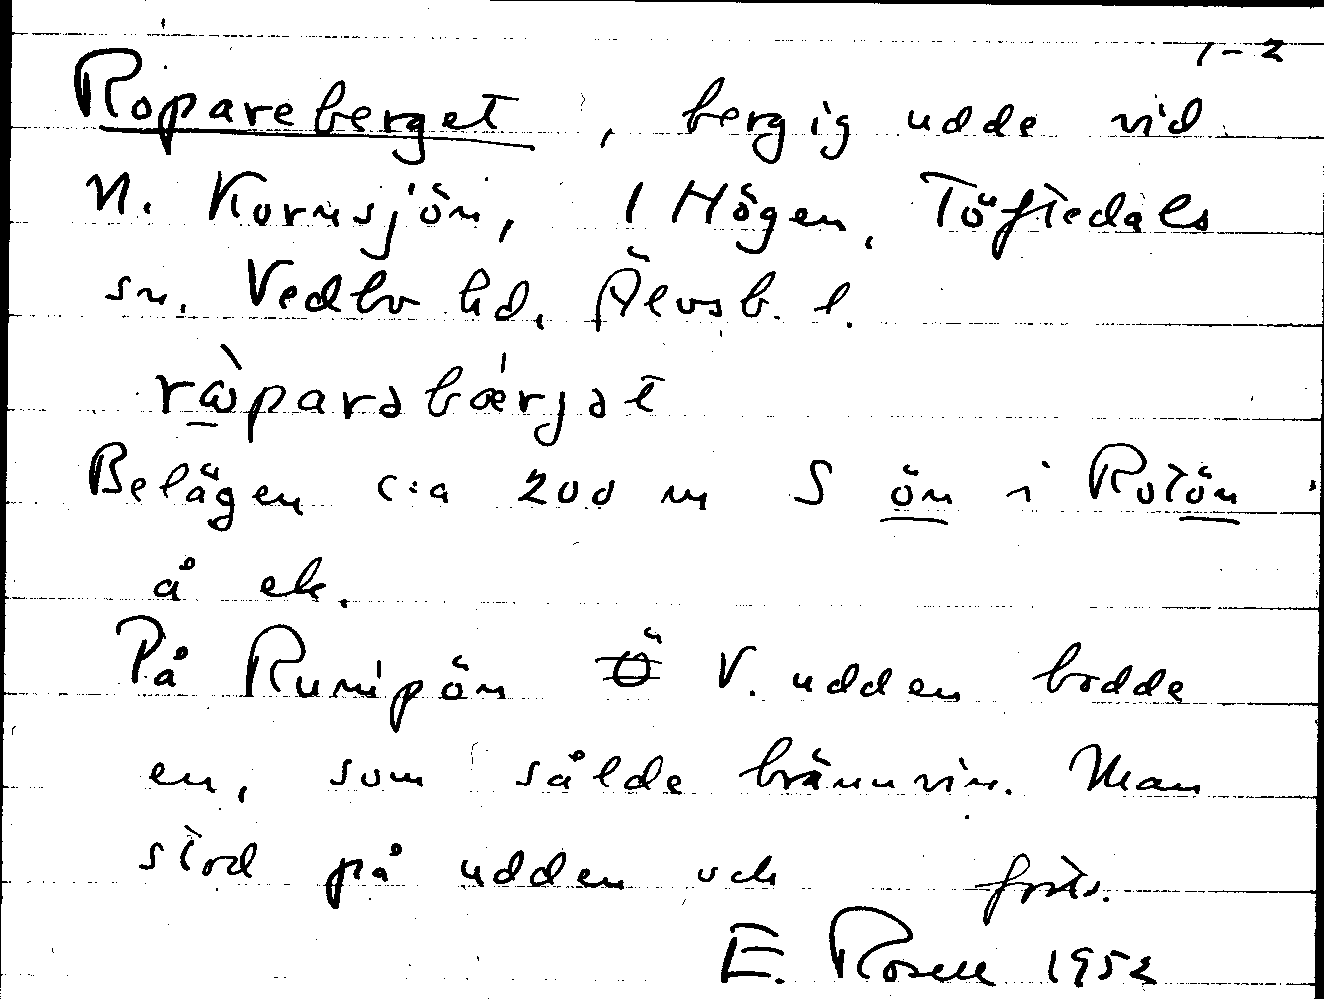 1-2
Ropareberget, bergig udde vid
N. Kornsjön, 1 Högen, Töftedals
sn. Vedbo hd, Älvsb. l.
Belägen c:a 200 m S ön i Rotön
å ek.
På Rumpön Ö V. udden bodde
en, som sålde brännvin. Man
stod på udden och forts.
E. Rosell 1952